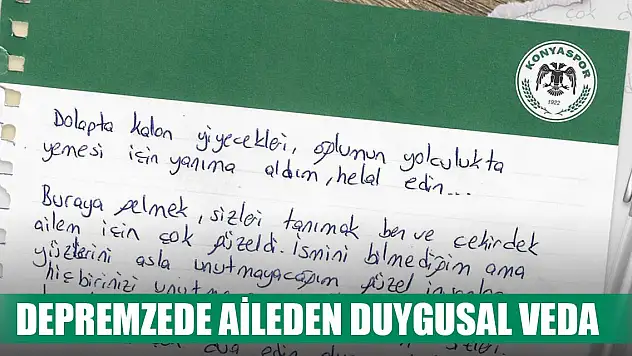 KONYASPOR
1922
Dolapta kalan yiyecekleri, oğlumun yolculukta
yemesi için yanıma aldım, helal edin...
Buraya gelmek, sizleri tanımak ben ve çekirdek
ailem için çok güzeldi. İsmini bilmediğim ama
yüzlerini asla unutmayacağım güzel insanlar
hiçbirinizi
DEPREMZEDE AİLEDEN DUYGUSAL VEDA
dua edin